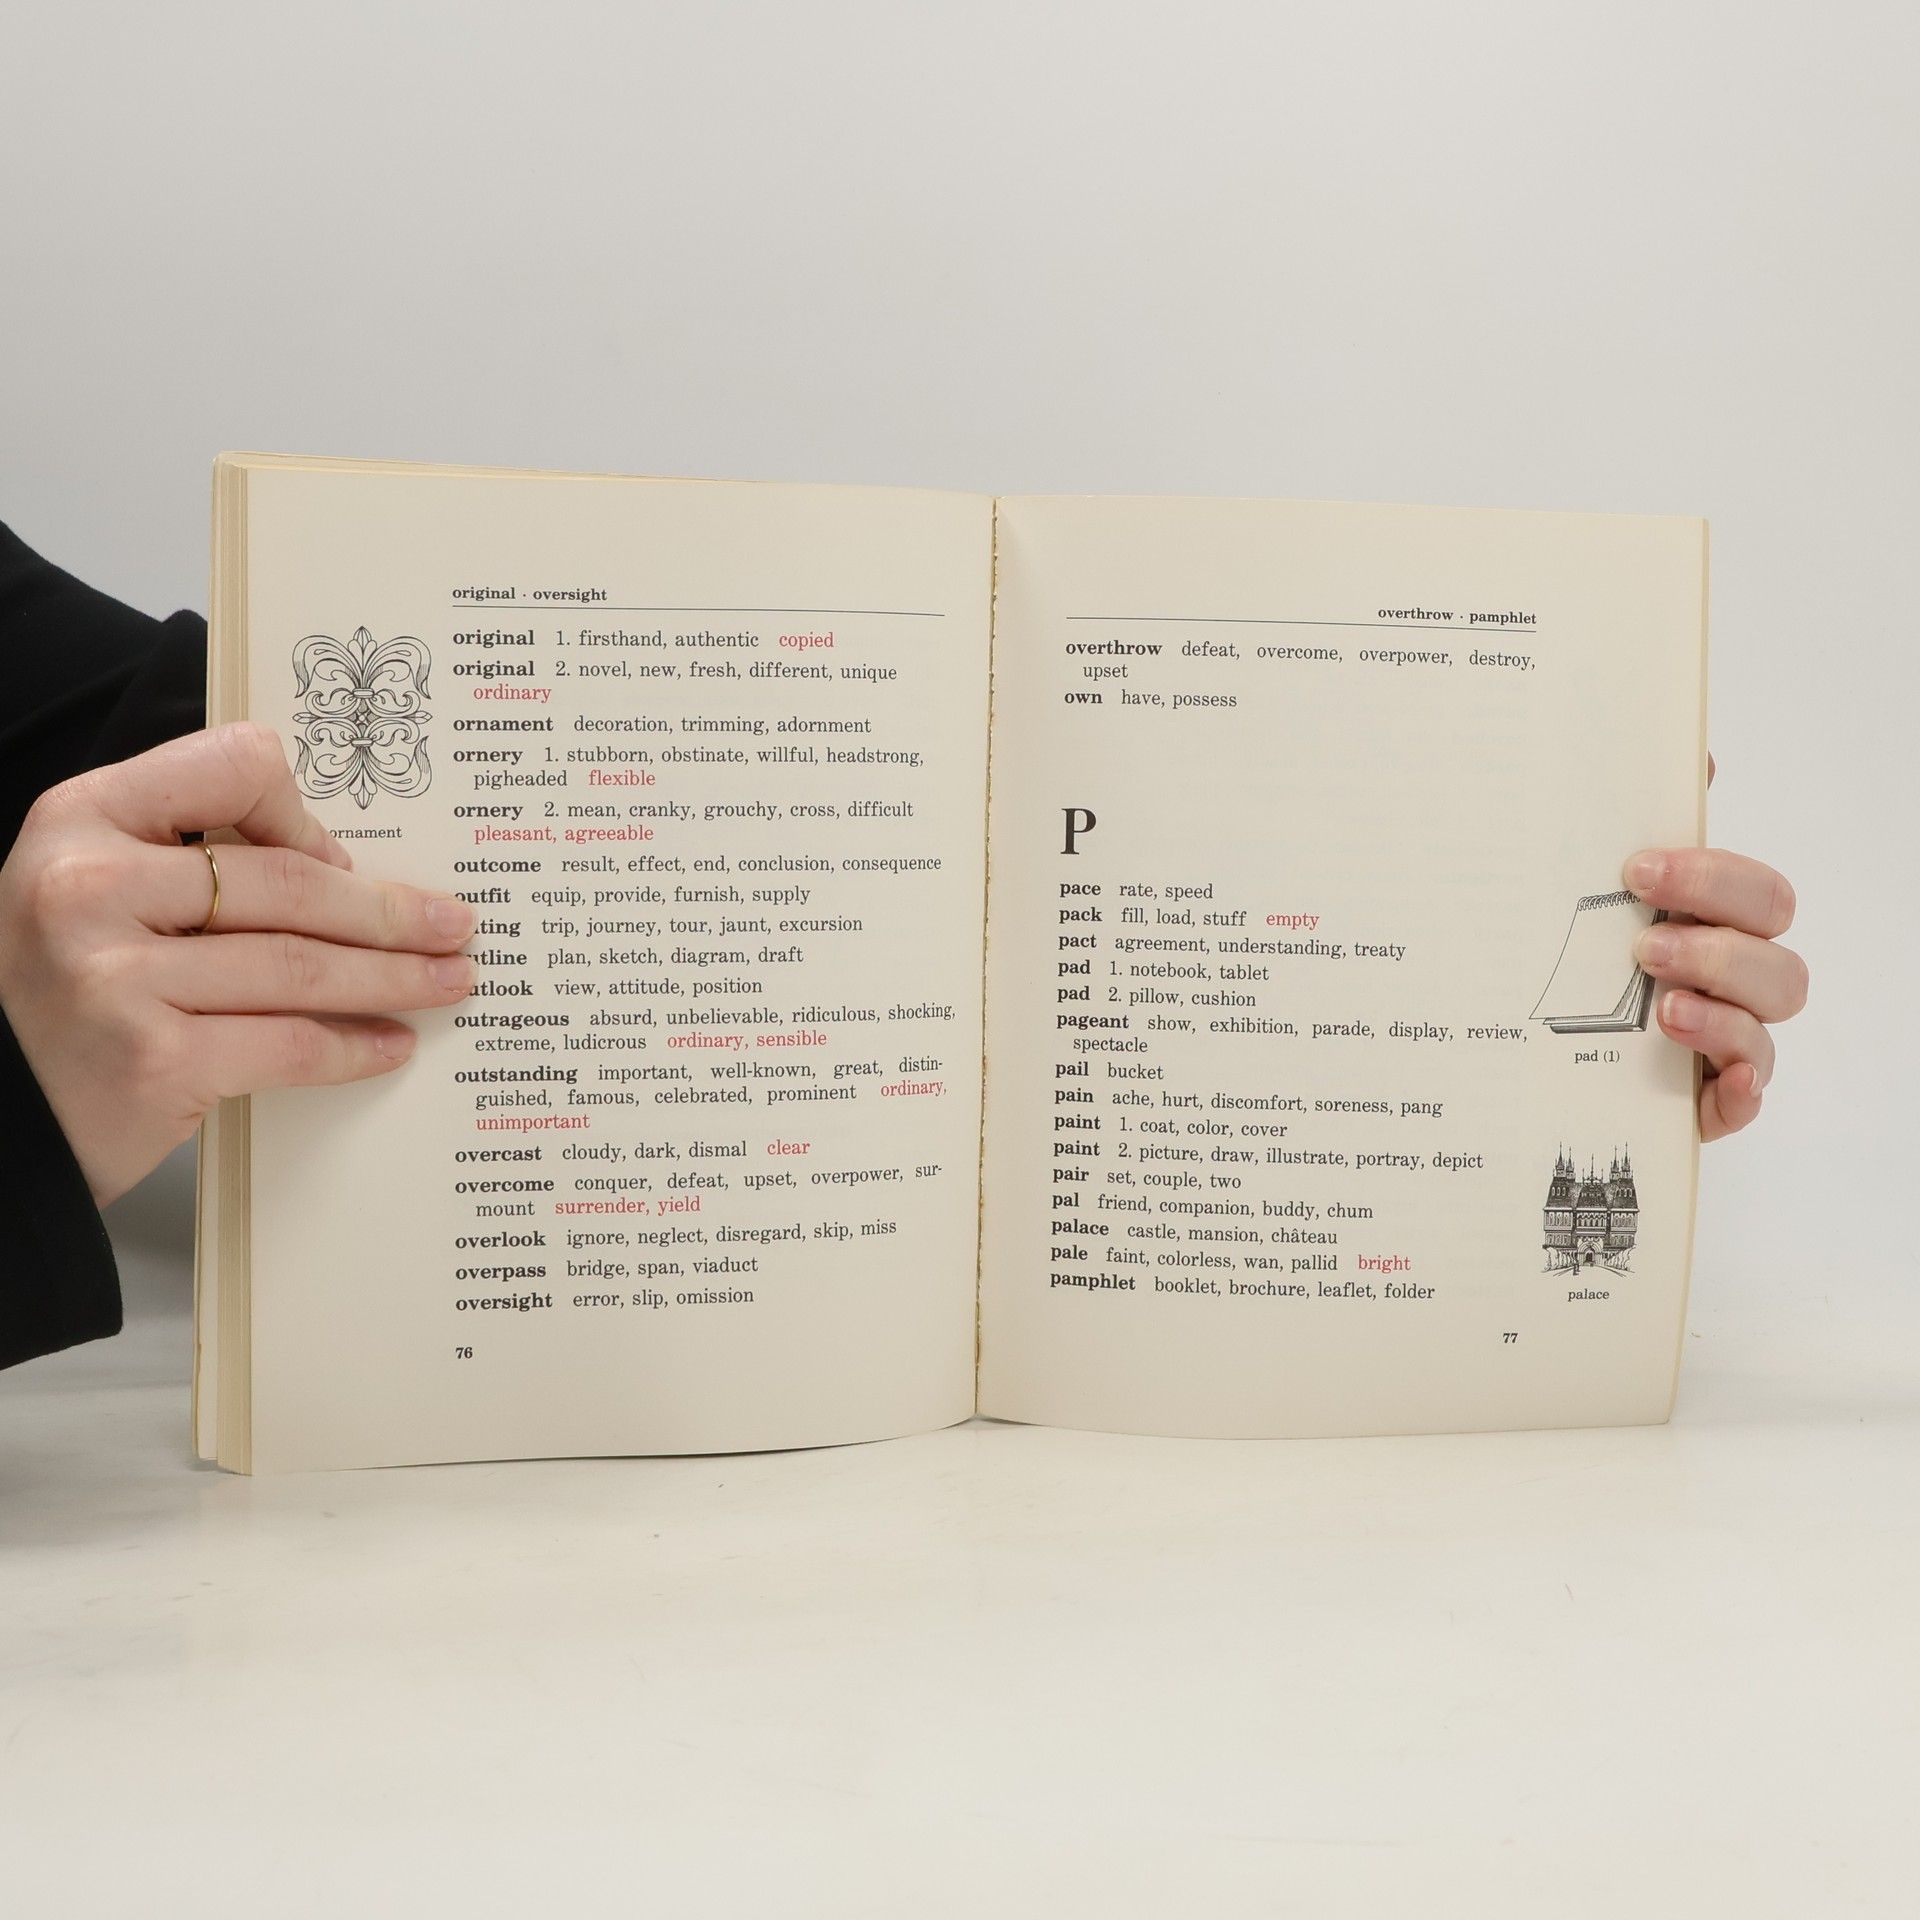 original · oversight
original 1. firsthand, authentic copied
original 2. novel, new, fresh, different, unique
ordinary
ornament decoration, trimming, adornment
ornery 1. stubborn, obstinate, willful, headstrong,
pigheaded flexible
ornery 2. mean, cranky, grouchy, cross, difficult
pleasant, agreeable
outcome result, effect, end, conclusion, consequence
outfit equip, provide, furnish, supply
trip, journey, tour, jaunt, excursion
plan, sketch, diagram, draft
view, attitude, position
outrageous absurd, unbelievable, ridiculous, shocking,
extreme, ludicrous ordinary, sensible
outstanding important, well-known, great, distin-
guished, famous, celebrated, prominent ordinary,
unimportant
overcast cloudy, dark, dismal clear
overcome conquer, defeat, upset, overpower, sur-
mount surrender, yield
overlook ignore, neglect, disregard, skip, miss
overpass bridge, span, viaduct
oversight error, slip, omission
76
ornament
overthrow · pamphlet
overthrow defeat, overcome, overpower, destroy,
upset
own have, possess
P
pace rate, speed
pack fill, load, stuff empty
pact agreement, understanding, treaty
pad 1. notebook, tablet
pad 2. pillow, cushion
pageant show, exhibition, parade, display, review,
spectacle
pail bucket
pain ache, hurt, discomfort, soreness, pang
paint 1. coat, color, cover
paint 2. picture, draw, illustrate, portray, depict
pair set, couple, two
pal friend, companion, buddy, chum
palace castle, mansion, château
pale faint, colorless, wan, pallid bright
pamphlet booklet, brochure, leaflet, folder
pad (1)
palace
77